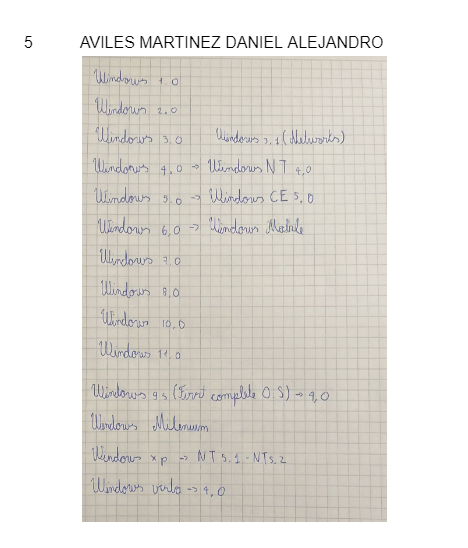 5 AVILES MARTINEZ DANIEL ALEJANDRO
Windows 1.0
Windows 2.0
Windows 3.0 Windows 3.1 (Networks)
Windows 4.0 -> Windows NT 4.0
Windows 5.0 -> Windows CE 5.0
Windows 6.0 -> Windows Mobile
Windows 7.0
Windows 8.0
Windows 10.0
Windows 11.0
Windows 95 (First complete O S) -> 4,0
Windows Milenium
Windows xp -> NT 5.1 - NT5.2
Windows -> 4,0